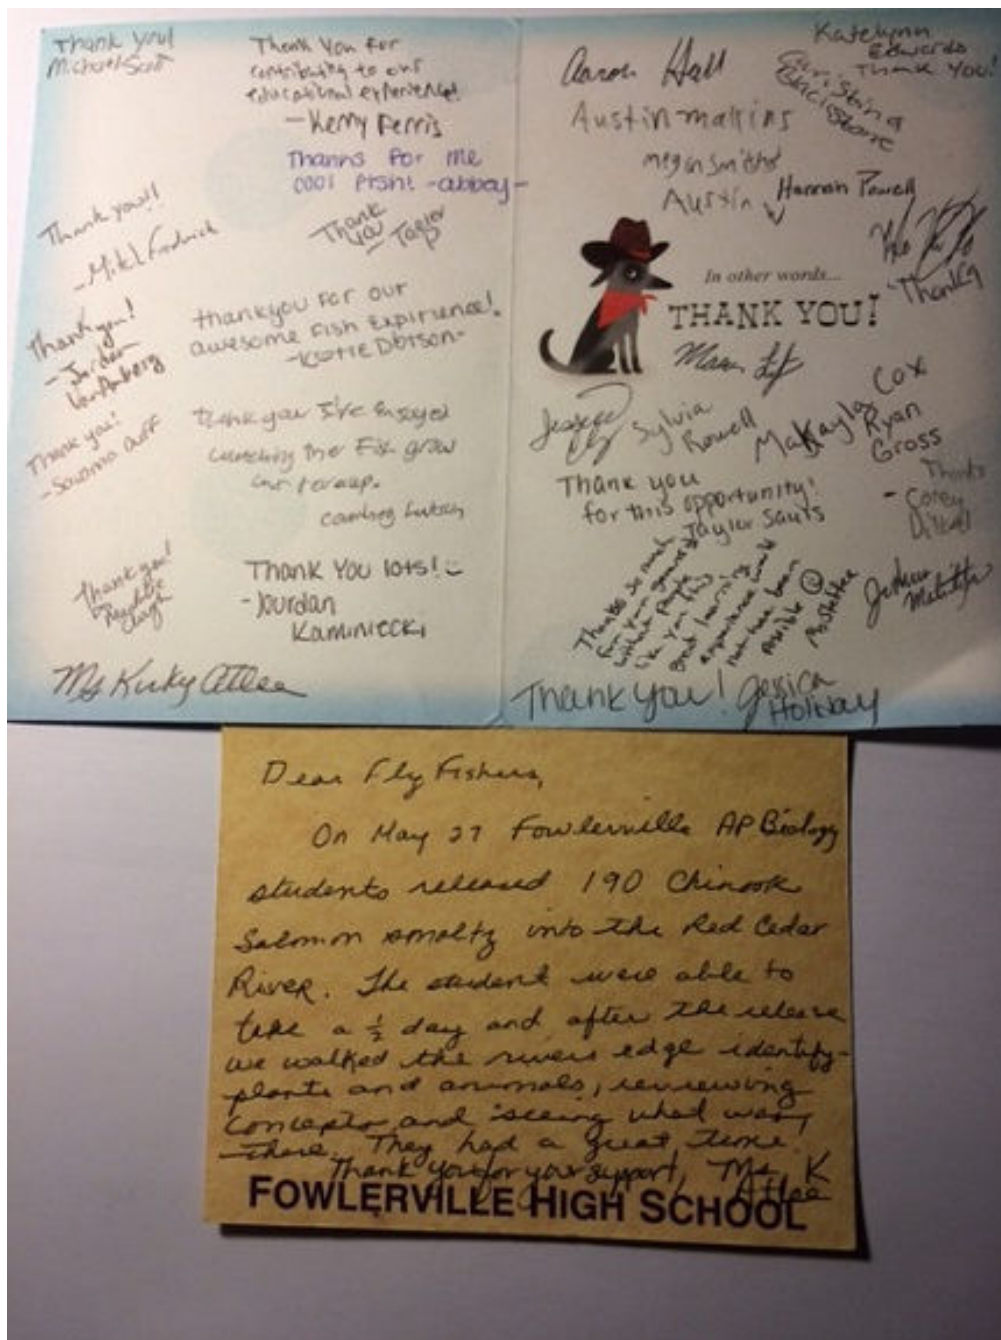 Thank you!
Michael Scott
Thank You for
contributing to our
educational experience!
-Kerry Ferris
Thanks for the
cool fish! -abbey-
Thank you!!
Thank
you Taylor
Thank you!
- Jordan
thankyou for our
awesome fish Expirience!
-Katie Dotson-
Thank you!
thank you I've Enjoyed
watching the Fish grow
Thank you!
Thank You lots!
-Jourdan
Kaminiecki
Ms Kirky Atlee
Aaron Hall
Katelynn
Edwards
Thank You!
Christina
Austin
megan
Austin
Hannah Powell
Thanks
In other words...
THANK YOU!
Sylvia
Rowell
Makayla Cox
Ryan
Gross
Thank you
for this opportunity!
Taylor
Thanks
- Corey
Thanks so much
for your generosity
without people
like you this
great learning
experience would
not have been
possible
Joshua
Thank you! Jessica
Holiday
Dear Fly Fishers,
On May 27 Fowlerville AP Biology
students released 190 Chinook
Salmon smolts into the Red Cedar
River. The student were able to
take a ½ day and after the release
we walked the rivers edge identify-
plants and animals, reviewing
concepts and seeing what was
there. They had a great time.
Thank you for your support, Ms. K
Atlee
FOWLERVILLE HIGH SCHOOL